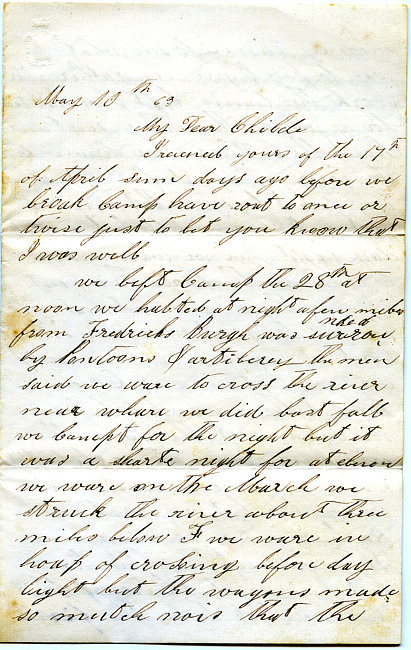 May 10th 63
My Dear Childe
I receved yours of the 17th
of April sum days ago before we
break Camp have rout to once or
twise just to let you know that
I was well
we left Camp the 28th at
noon we halted at night a few miles
from Fredricks Burgh was surrounded
by Pontoons & artilerey the men
said we ware to cross the river
near whare we did last fall
we Campt for the night but it
was a sharte night for at eleven
we ware on the March we
struck the river about three
miles below F we ware in
hoap of crossing before day
light but the wagons made
so mutch nois that the